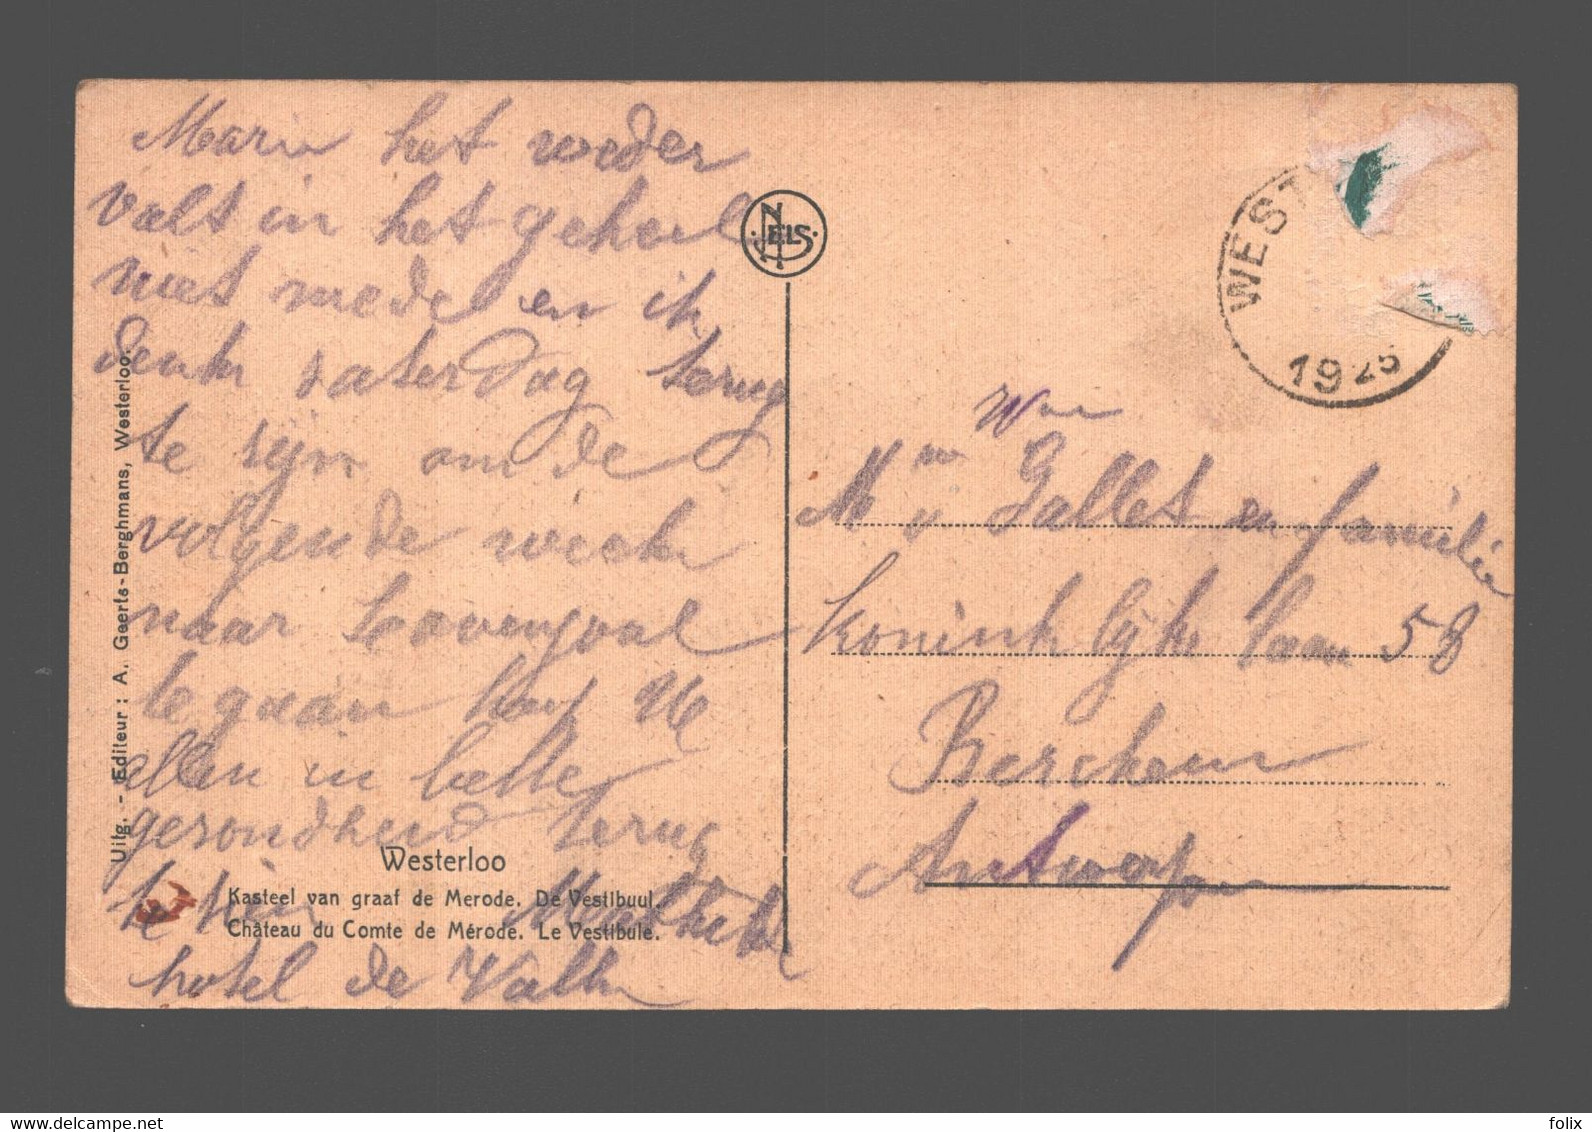 Marie het weder
valt in het geheel
niet mede en ik
denk zaterdag terug
te zijn om de
volgende week
naar Lovenjoul
te gaan hoop U
allen in beste
gezondheid terug
te zien
hotel de
Westerloo
Kasteel van graaf de Merode. De Vestibuul.
Château du Comte de Mérode. Le Vestibule.
Uitg. - Editeur : A. Geerts-Berghmans, Westerloo.
NELS
WEST
1925
Wwe
Gallet en familie
Koninklijke laan 58
Berchem
Antwerpen
www.delcampe.net
folix